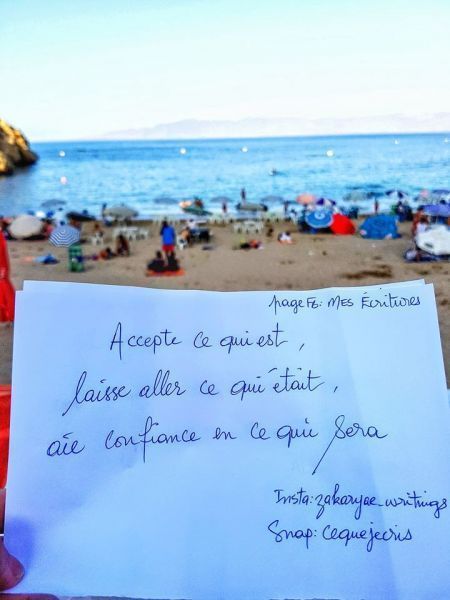 page Fb: Mes Écritures
Accepte ce qui est,
laisse aller ce qui était,
aie confiance en ce qui sera
Insta: zakaryae_writings
Snap: cequejecris